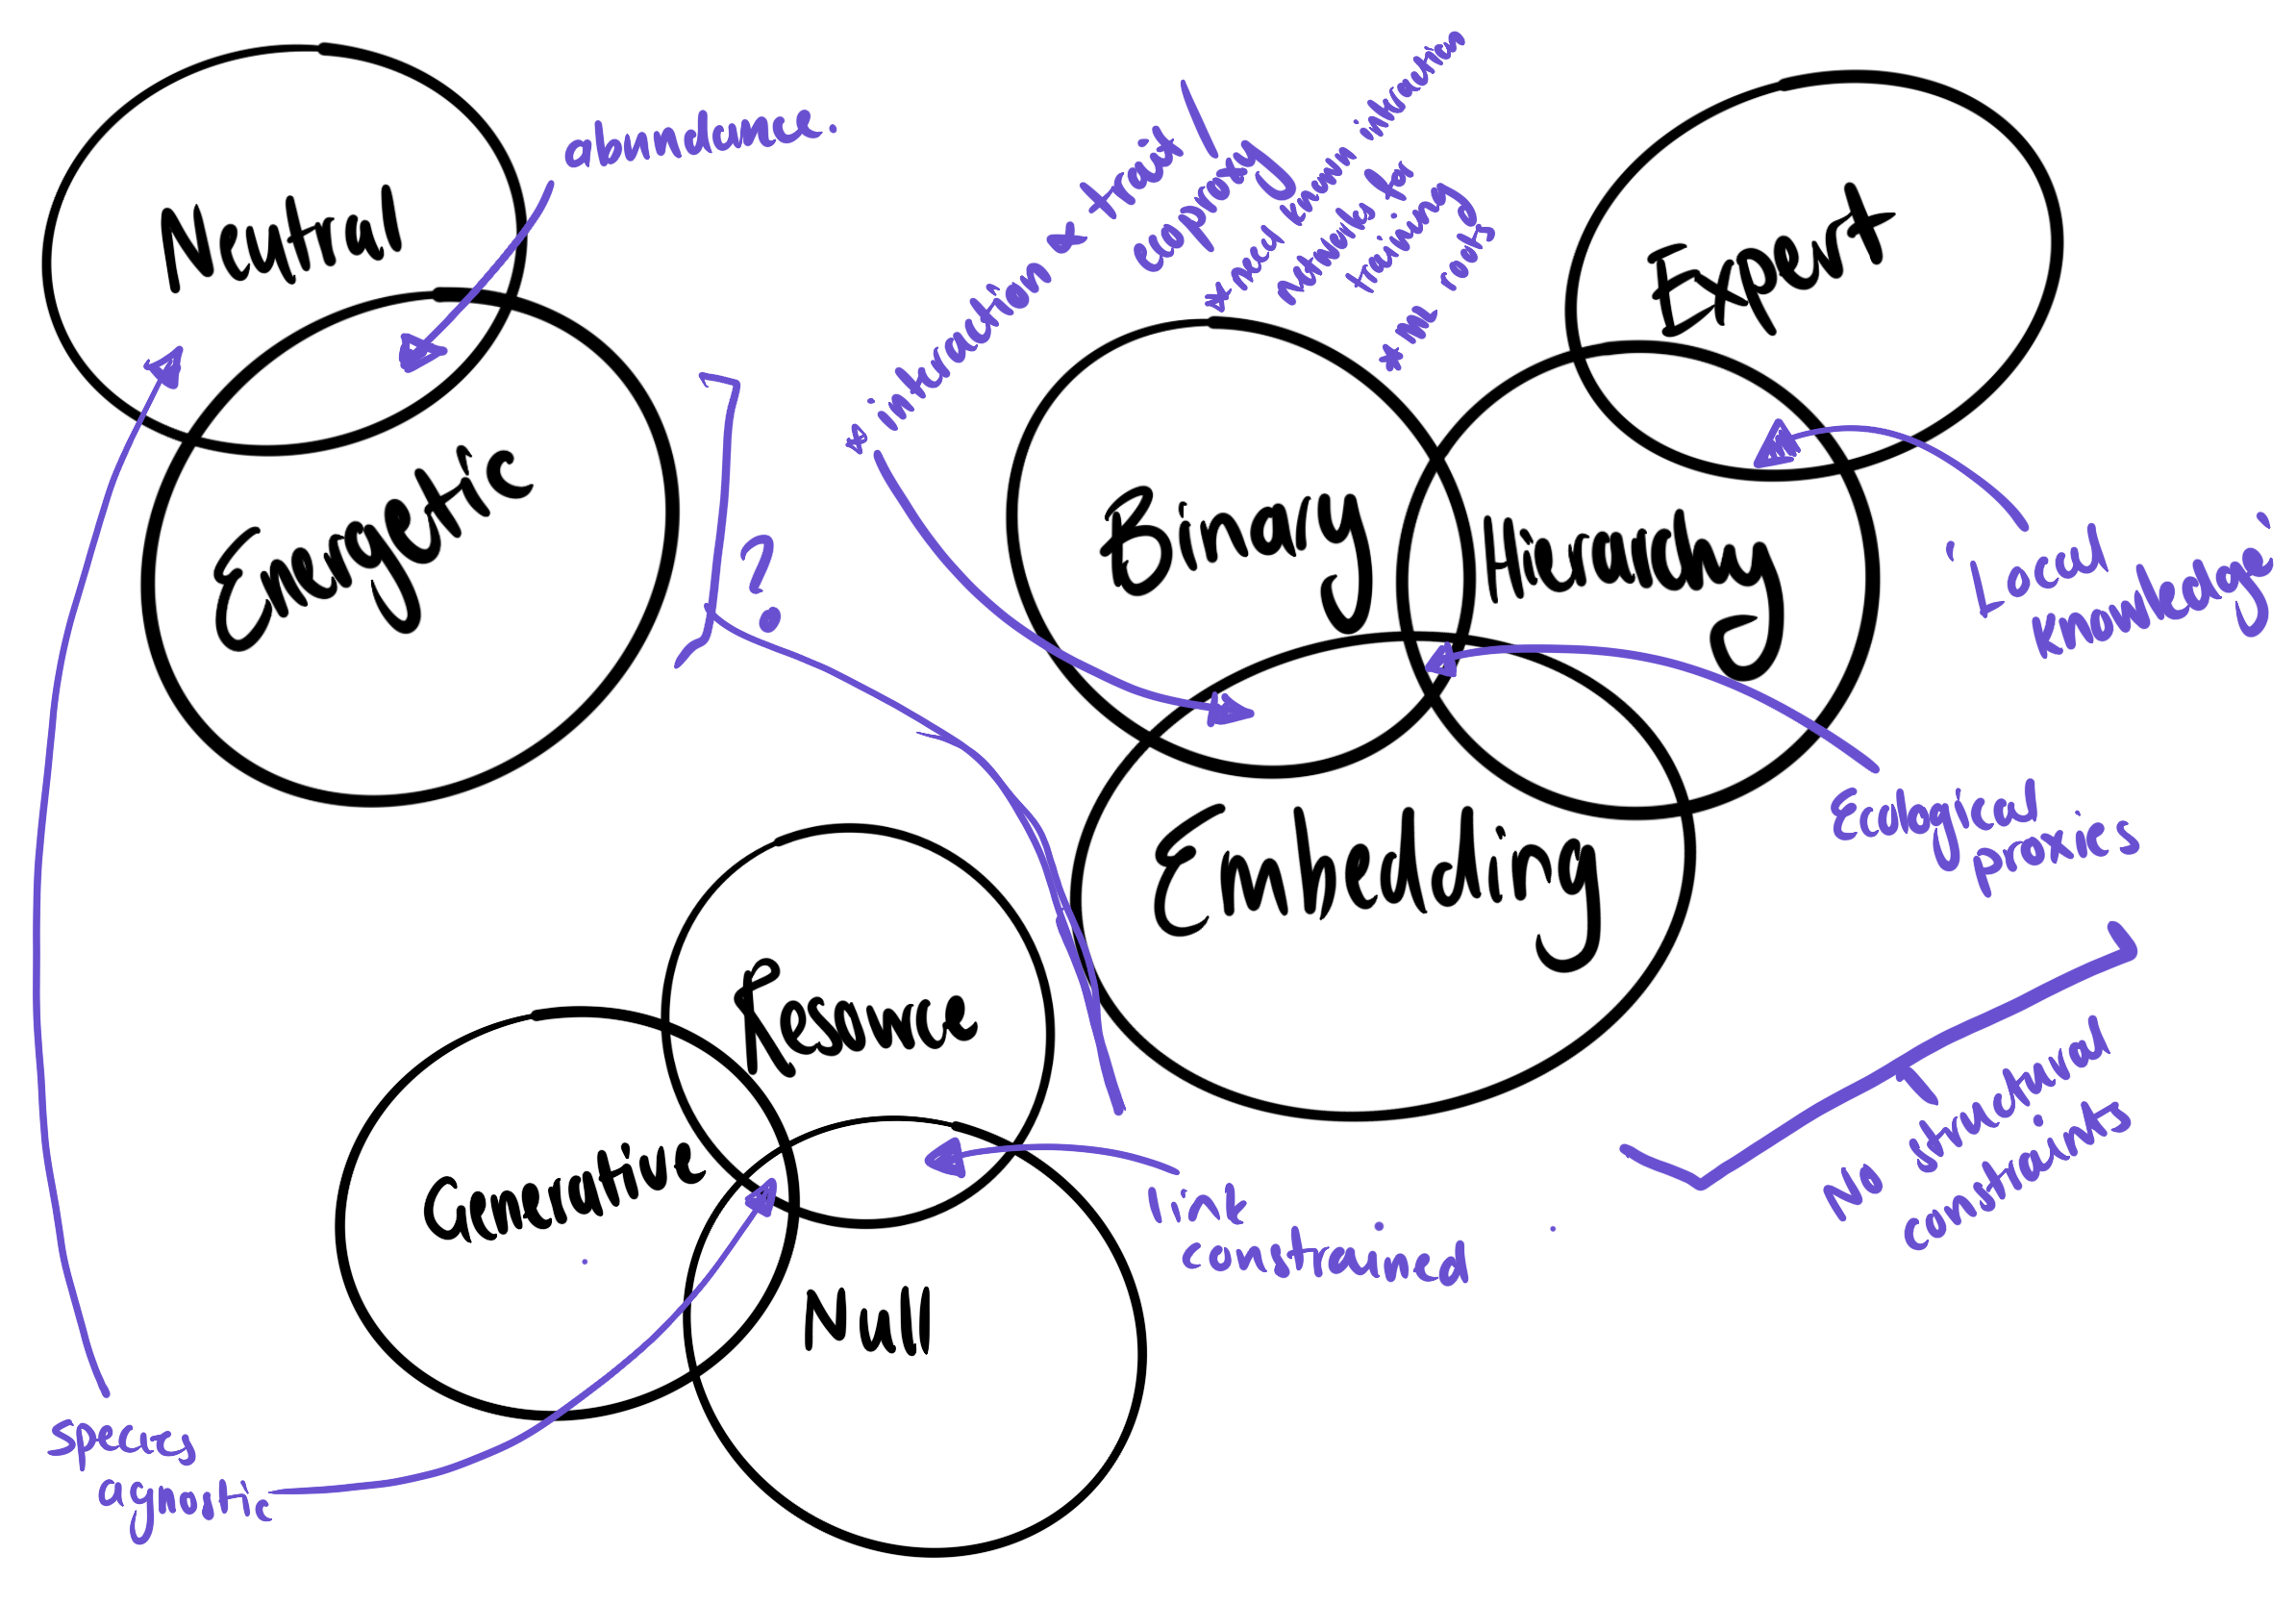 Neutral
Energetic
abundance.
* interaction & trait
coproty
* need known interaction
networks for
training
* ML roots
Expert
Binary
Hierarchy
Embedding
'Local
knowledge'
Ecological
proxies
?
No structural
constraints
Resource
Generative
Null
link
constrained
species
agnostic